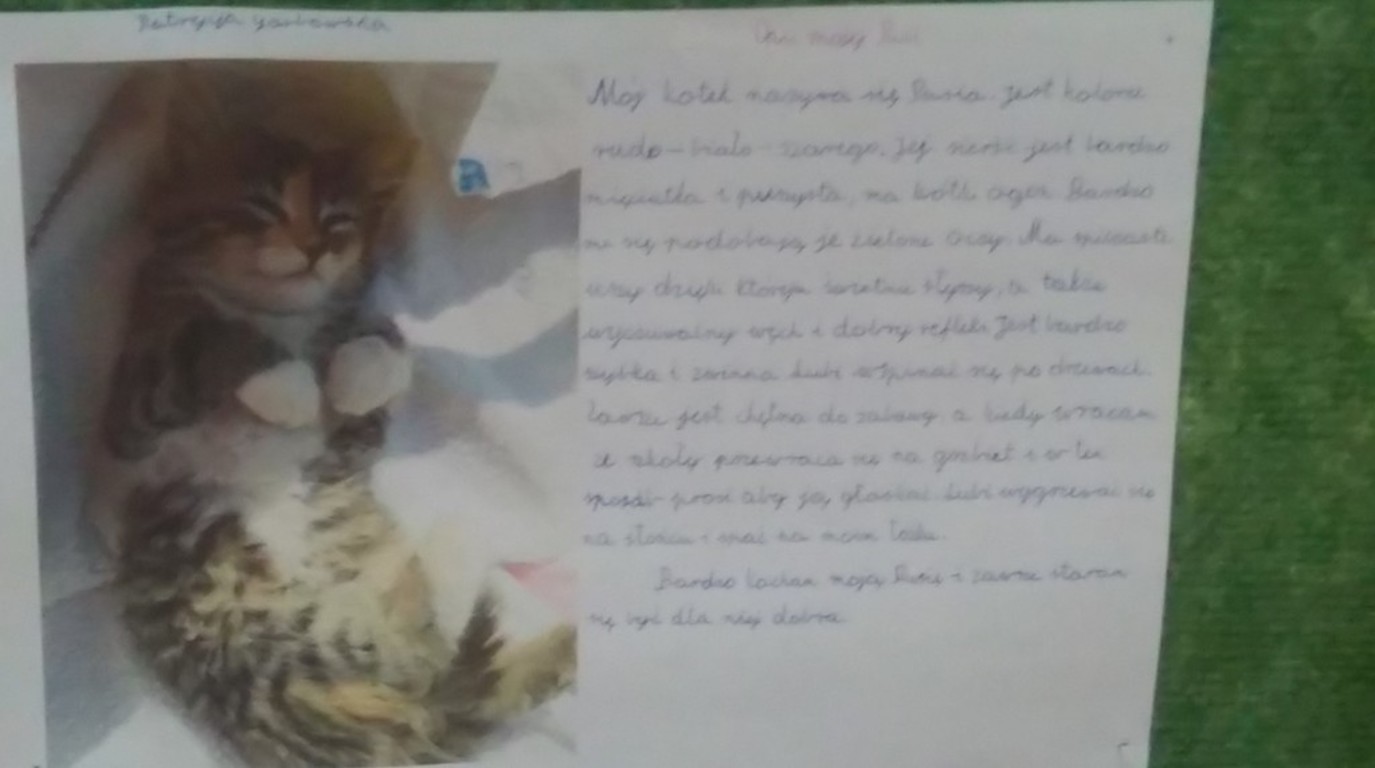 Patrycja
Opis mojej Rusi
Mój kotek nazywa się Rusia. Jest koloru
rudo-biało-szarego. Jej sierść jest bardzo
mięciutka i puszysta, ma długi ogon. Bardzo
mi się podobają jej zielone oczy. Ma
uszy dzięki którym świetnie słyszy, a także
węch i dobry refleks. Jest bardzo
szybka i zwinna. Lubi wspinać się po drzewach.
Zawsze jest chętna do zabawy, a kiedy wracam
ze szkoły przewraca się na grzbiet i w ten
sposób prosi aby ją głaskać. Lubi wygrzewać się
na słońcu i spać na moim łóżku.
Bardzo kocham moją Rusię i zawsze staram
się być dla niej dobra.